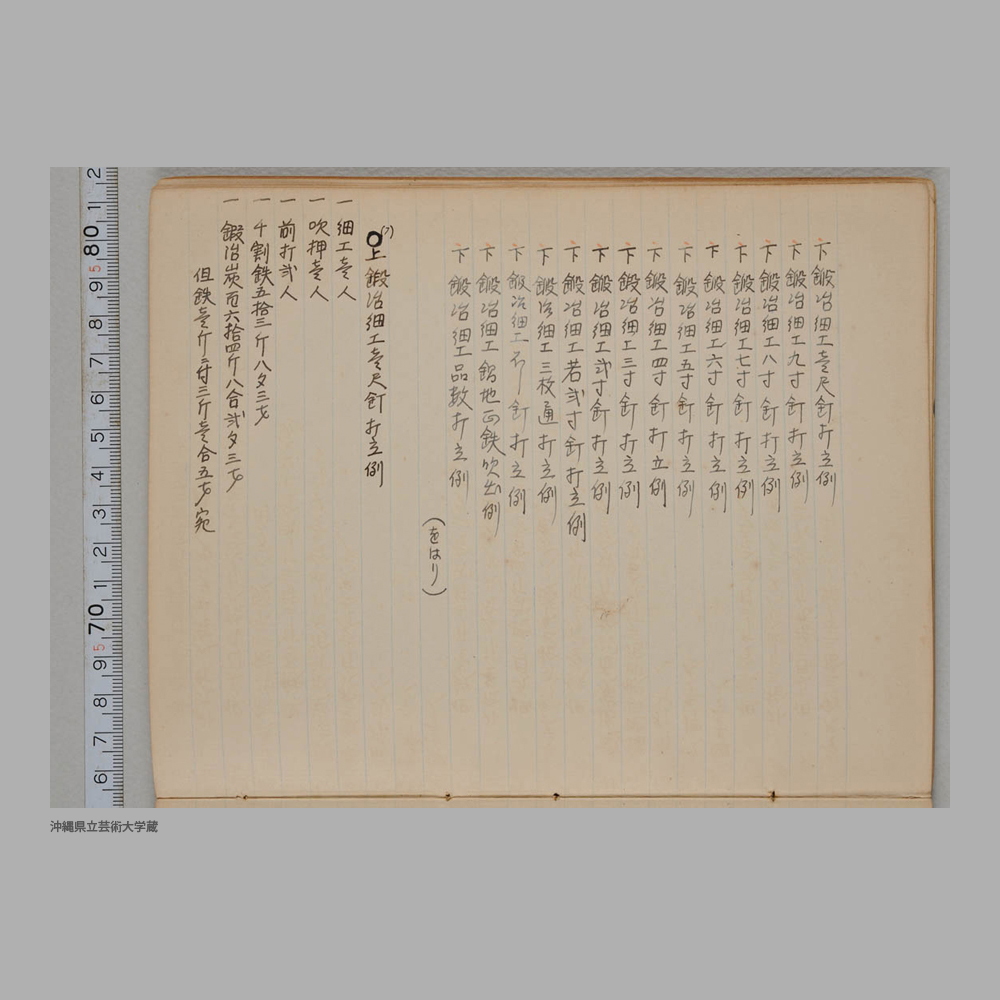 下鍛冶細工壱尺釘打立例
下鍛冶細工九寸釘打立例
下鍛冶細工八寸釘打立例
下鍛冶細工七寸釘打立例
下鍛冶細工六寸釘打立例
下鍛冶細工五寸釘打立例
下鍛冶細工四寸釘打立例
下鍛冶細工三寸釘打立例
下鍛冶細工弐寸釘打立例
下鍛冶細工若弐寸釘打立例
下鍛冶細工三枚通打立例
下鍛冶細工釘打立例
下鍛冶細工鍜地正鉄吹出例
下鍛冶細工品数打立例
(をはり)
(ワ)
上鍛冶細工壱尺釘打立例
一細工壱人
一吹押壱人
一前打弐人
一千割鉄五拾三斤八夕三才
一鍛冶炭百六拾四斤八合弐夕三才
但鉄壱斤ニ付三斤壱合五才宛
2
1
80
9
5
8
7
6
5
4
3
2
1
70
9
5
8
7
6
沖縄県立芸術大学蔵